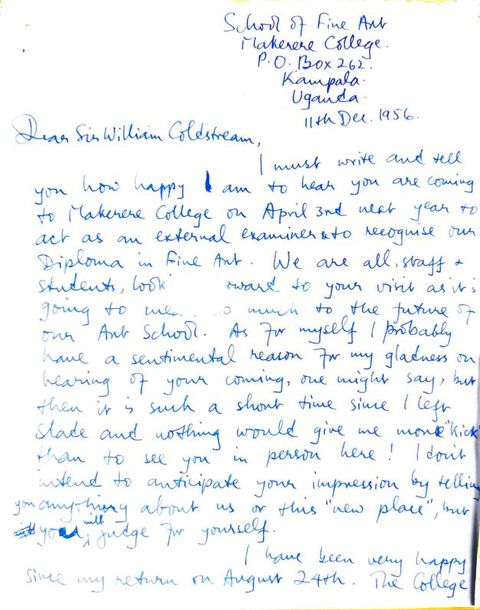 School of Fine Art
Makerere College.
P.O. Box 262.
Kampala.
Uganda.
11th Dec. 1956.
Dear Sir William Coldstream,
I must write and tell
you how happy I am to hear you are coming
to Makerere College on April 3rd next year to
act as an external examiner & to recognise our
Diploma in Fine Art. We are all, staff &
students, look rward to your visit as it is
going to me o much to the future of
our Art School. As for myself I probably
have a sentimental reason for my gladness on
hearing of your coming, one might say, but
then it is such a short time since I left
Slade and nothing would give me more "kick"
than to see you in person here! I don't
intend to anticipate your impression by telling
you anything about us or this "new place", but
you will judge for yourself.
I have been very happy
since my return on August 24th. The College